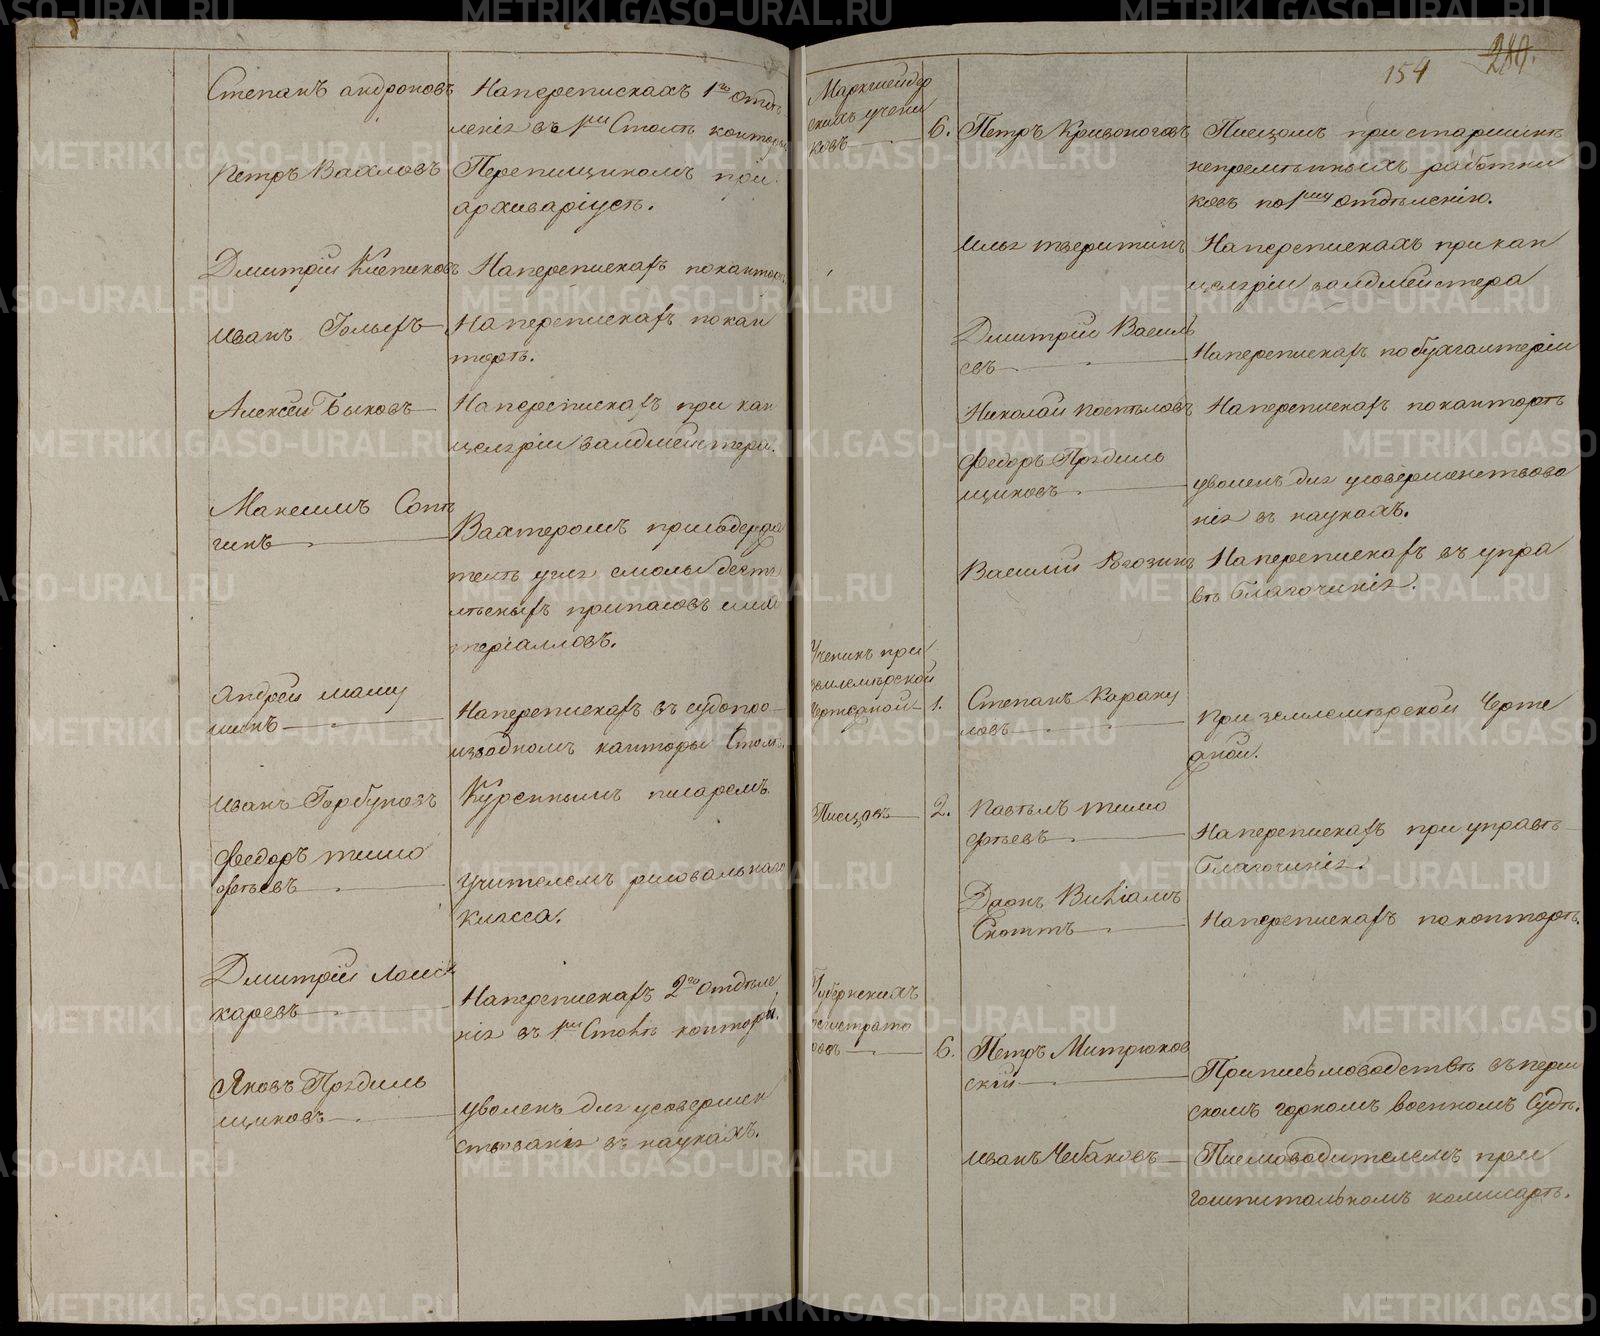 Степанъ Андроновъ На перепискахъ 1го отдѣ
ленія въ 1мъ Столѣ конторы
Петръ Вахловъ Перепищикомъ при
архиваріусѣ.
Дмитрій Клепиковъ На перепискахъ по конторѣ
Иванъ На перепискахъ по кон
торѣ.
Алексѣй Быковъ На перепискахъ при кан
целяріи валдмейстера.
Максимъ Сопѣ
гинъ Вахтеромъ при
угля смолы
припасовъ и ма
теріалловъ.
Андрей Мамы
На перепискахъ въ судопро
изводномъ конторы Столѣ.
Иванъ Горбуновъ Куреннымъ писаремъ
Федоръ Тимо
фѣевъ Учителемъ рисовальнаго
класса.
Дмитрій
каревъ На перепискахъ 2го отдѣле
нія въ 1мъ Столѣ конторы.
Яковъ Прядиль
щиковъ Уволенъ для усовершен
ствованія въ наукахъ.
154 289.
Маркшейдер
скихъ учени
ковъ 6. Петръ Кривоноговъ Писцомъ при старшинѣ
непремѣнныхъ работни
ковъ по 1му отдѣленію.
Илья Тверитинъ На перепискахъ при кан
целяріи валдмейстера
Дмитрій Василь
евъ На перепискахъ по бухгалтеріи
Николай Поспѣловъ На перепискахъ по конторѣ
Федоръ Прядиль
щиковъ Уволенъ для усовершенствова
нія въ наукахъ.
Василій Рогозинъ На перепискахъ въ упра
вѣ благочинія.
Ученикъ при
землемѣрской
Чертежной 1. Степанъ Караку
ловъ При землемѣрской Черте
жной.
Писцовъ 2. Павѣлъ Тимо
фѣевъ На перепискахъ при управѣ
благочинія.
Джонъ Виліамъ
Скоттъ На перепискахъ по конторѣ.
Губернскихъ
регистрато
ровъ 6. Петръ Митрюков
скій При письмоводствѣ въ перм
скомъ горномъ военномъ Судѣ.
Иванъ Чебаковъ Письмоводителемъ при
гошпитальномъ комисарѣ.
METRIKI.GASO-URAL.RU